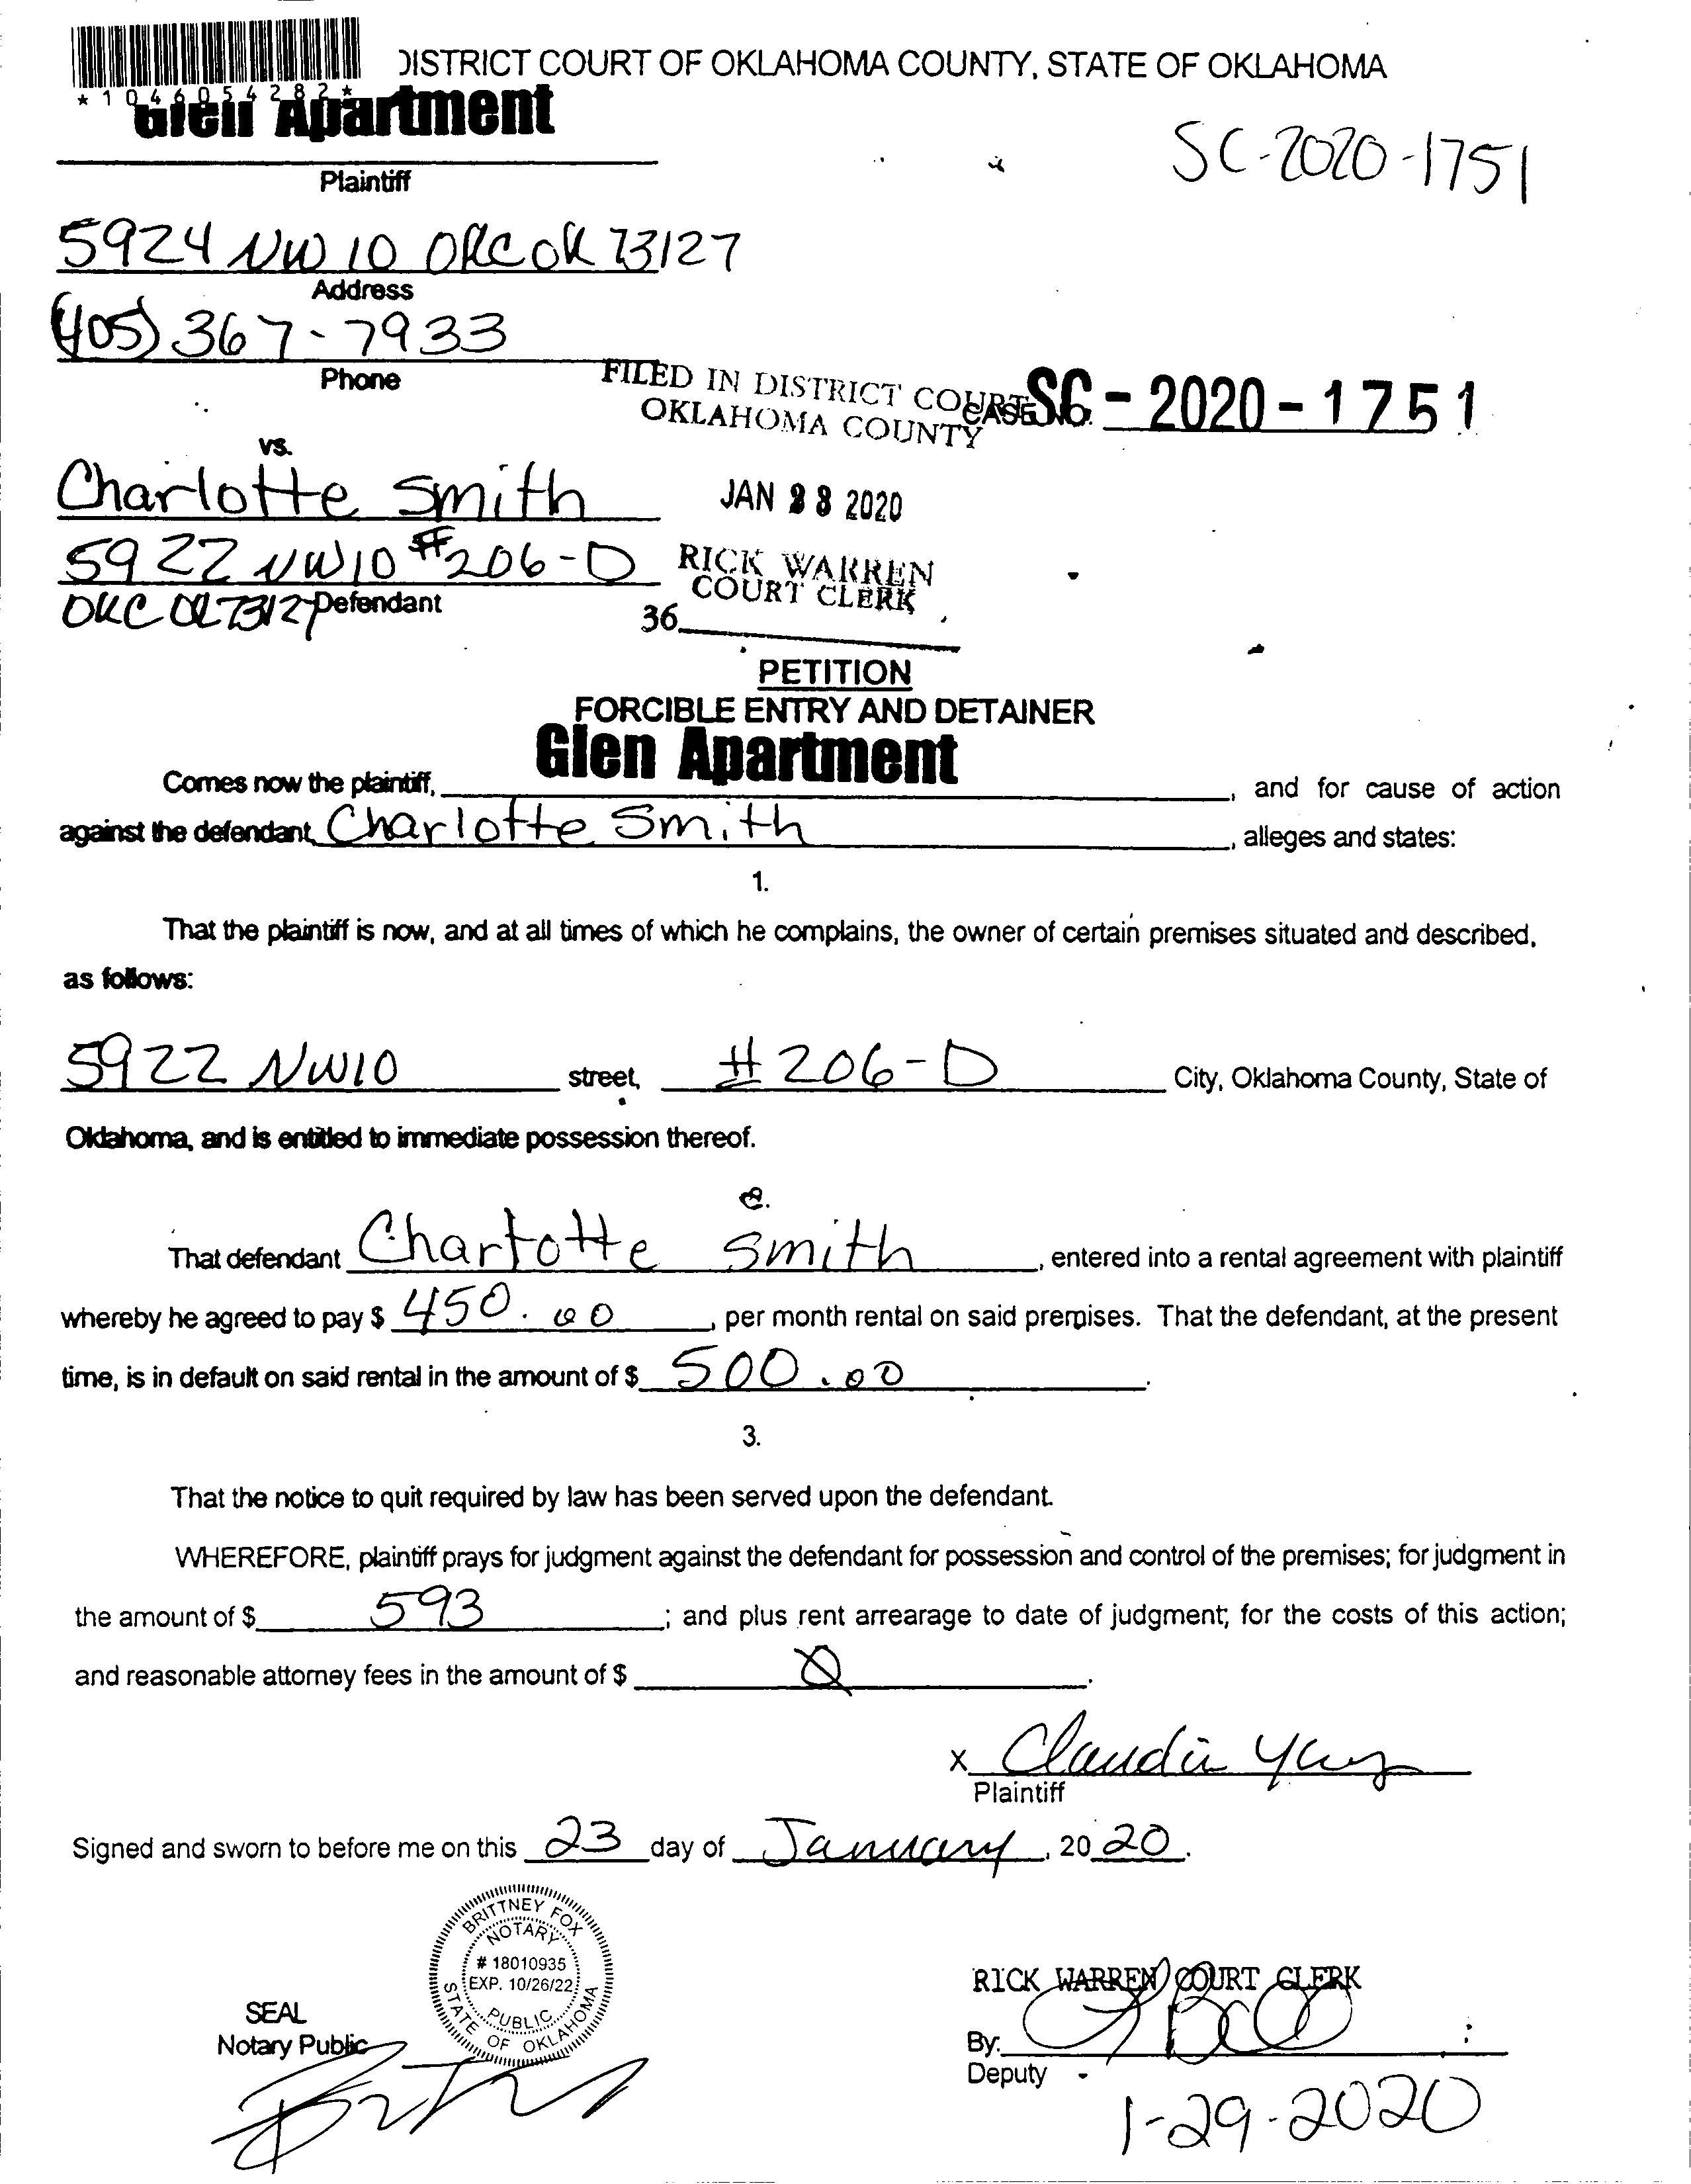 DISTRICT COURT OF OKLAHOMA COUNTY, STATE OF OKLAHOMA
*1046054282*
Glen Apartment
SC-2020-1751
Plaintiff
5924 NW 10 OKC OK 73127
Address
(405) 367-7933
Phone
FILED IN DISTRICT COURT
OKLAHOMA COUNTY
CASE NO. SC - 2020 - 1751
vs.
Charlotte Smith
JAN 28 2020
5922 NW 10 #206-D
RICK WARREN
COURT CLERK
OKC OK 73127 Defendant
36
PETITION
FORCIBLE ENTRY AND DETAINER
Comes now the plaintiff, Glen Apartment, and for cause of action
against the defendant, Charlotte Smith, alleges and states:
1.
That the plaintiff is now, and at all times of which he complains, the owner of certain premises situated and described,
as follows:
5922 NW10 street, #206-D City, Oklahoma County, State of
Oklahoma, and is entitled to immediate possession thereof.
That defendant Charlotte Smith, entered into a rental agreement with plaintiff
whereby he agreed to pay $ 450.00, per month rental on said premises. That the defendant, at the present
time, is in default on said rental in the amount of $ 500.00.
3.
That the notice to quit required by law has been served upon the defendant.
WHEREFORE, plaintiff prays for judgment against the defendant for possession and control of the premises; for judgment in
the amount of $ 593; and plus rent arrearage to date of judgment; for the costs of this action;
and reasonable attorney fees in the amount of $ 0.
X Claudia
Plaintiff
Signed and sworn to before me on this 23 day of January, 2020.
BRITTNEY FOX
NOTARY
# 18010935
EXP. 10/26/22
PUBLIC
STATE OF OKLAHOMA
SEAL
Notary Public
RICK WARREN COURT CLERK
By:
Deputy
1-29-2020